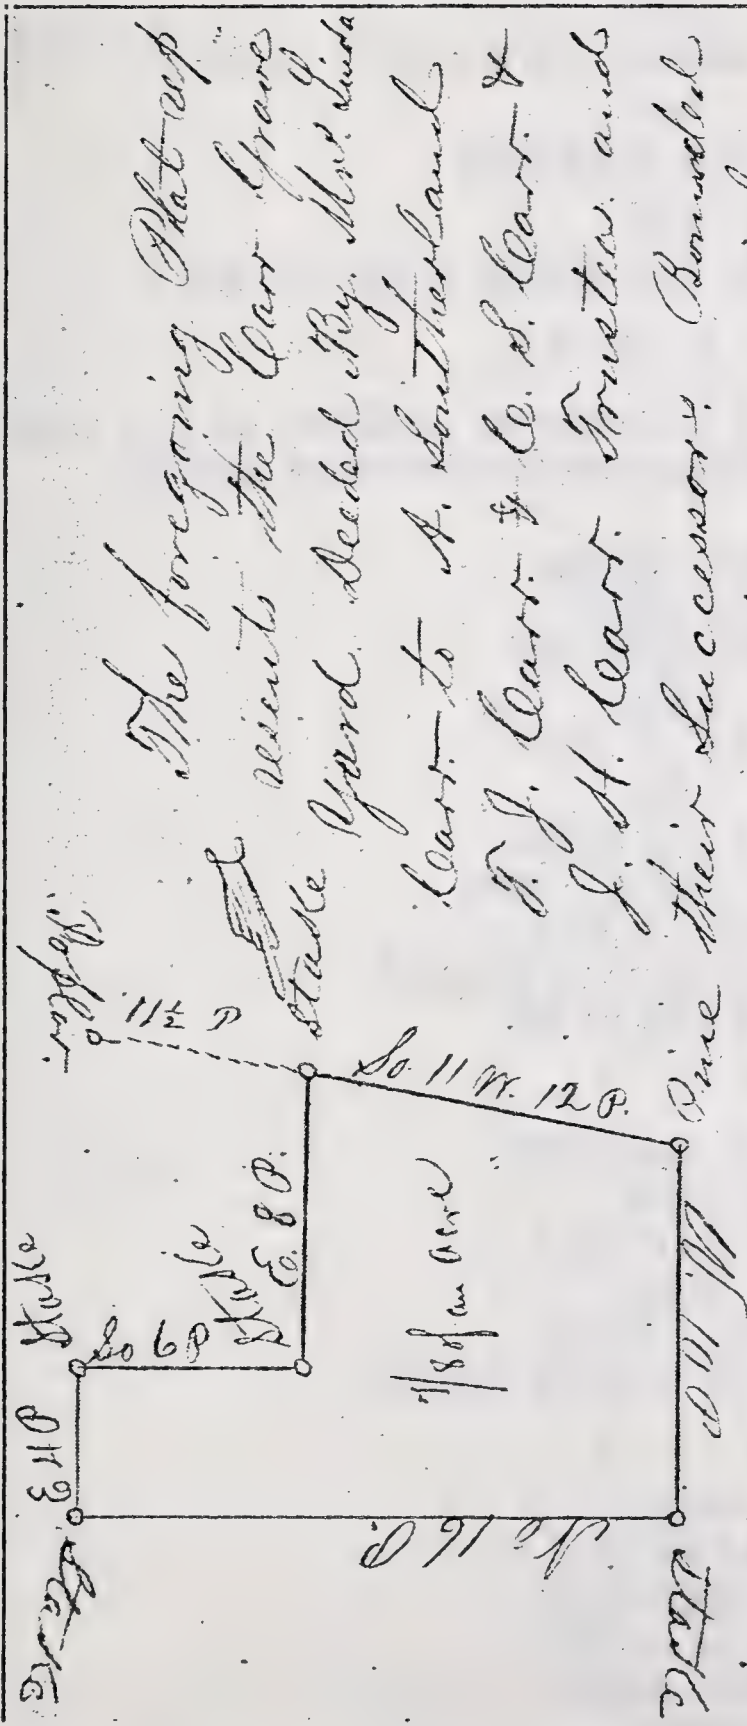 Stake
E 4 P
Stake
So 6 P
Stake
E. 8 P.
Stake
Poplar.
11½ P
So. 11 W. 12 P.
Pine
W. 10 P
Stake
No 16 P.
7/8 of an acre
The foregoing Plat rep
resents the Carr Grave
Yard. Deeded By. Mrs. Linda
Carr. to A. Southerland
T. J. Carr. & C. S. Carr. &
J. H. Carr. Trustees and
their Successors. Bounded